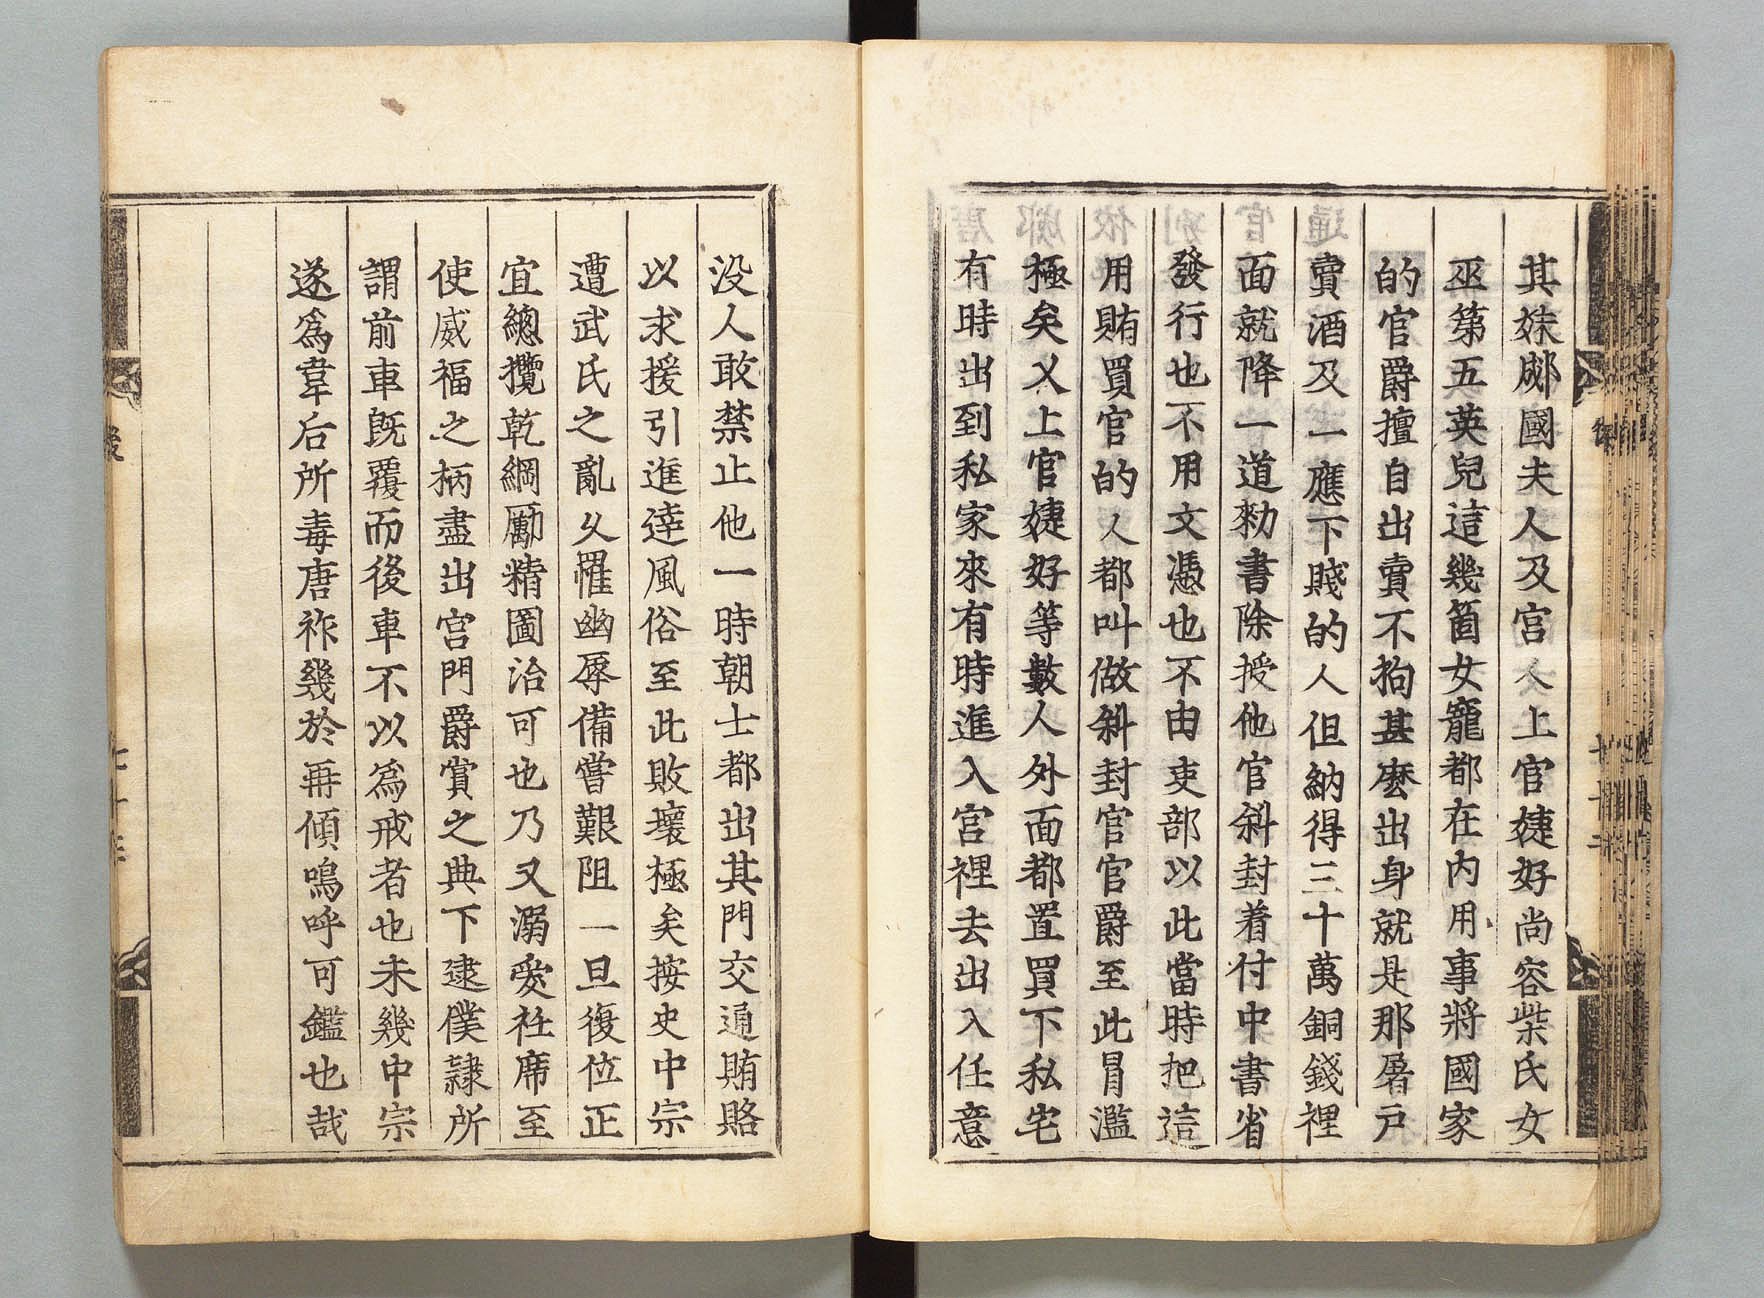 其妹郕國夫人及宮人上官婕妤尚容柴氏女
巫第五英兒這幾箇女寵都在內用事將國家
的官爵擅自出賣不拘甚麽出身就是那屠户
賣酒及一應下賤的人但納得三十萬銅錢裡
面就降一道勑書除授他官斜封着付中書省
發行也不用文憑也不由吏部以此當時把這
用賄買官的人都叫做斜封官官爵至此冒濫
極矣又上官婕妤等數人外面都置買下私宅
有時出到私家來有時進入宮裡去出入任意
没人敢禁止他一時朝士都出其門交通賄賂
以求援引進達風俗至此敗壞極矣按史中宗
遭武氏之亂久罹幽辱備嘗艱阻一旦復位正
宜總攬乾綱勵精圖治可也乃又溺愛衽席至
使威福之柄盡出宮門爵賞之典下逮僕隷所
謂前車旣覆而後車不以為戒者也未幾中宗
遂爲韋后所毒唐祚幾於再傾嗚呼可鑑也哉